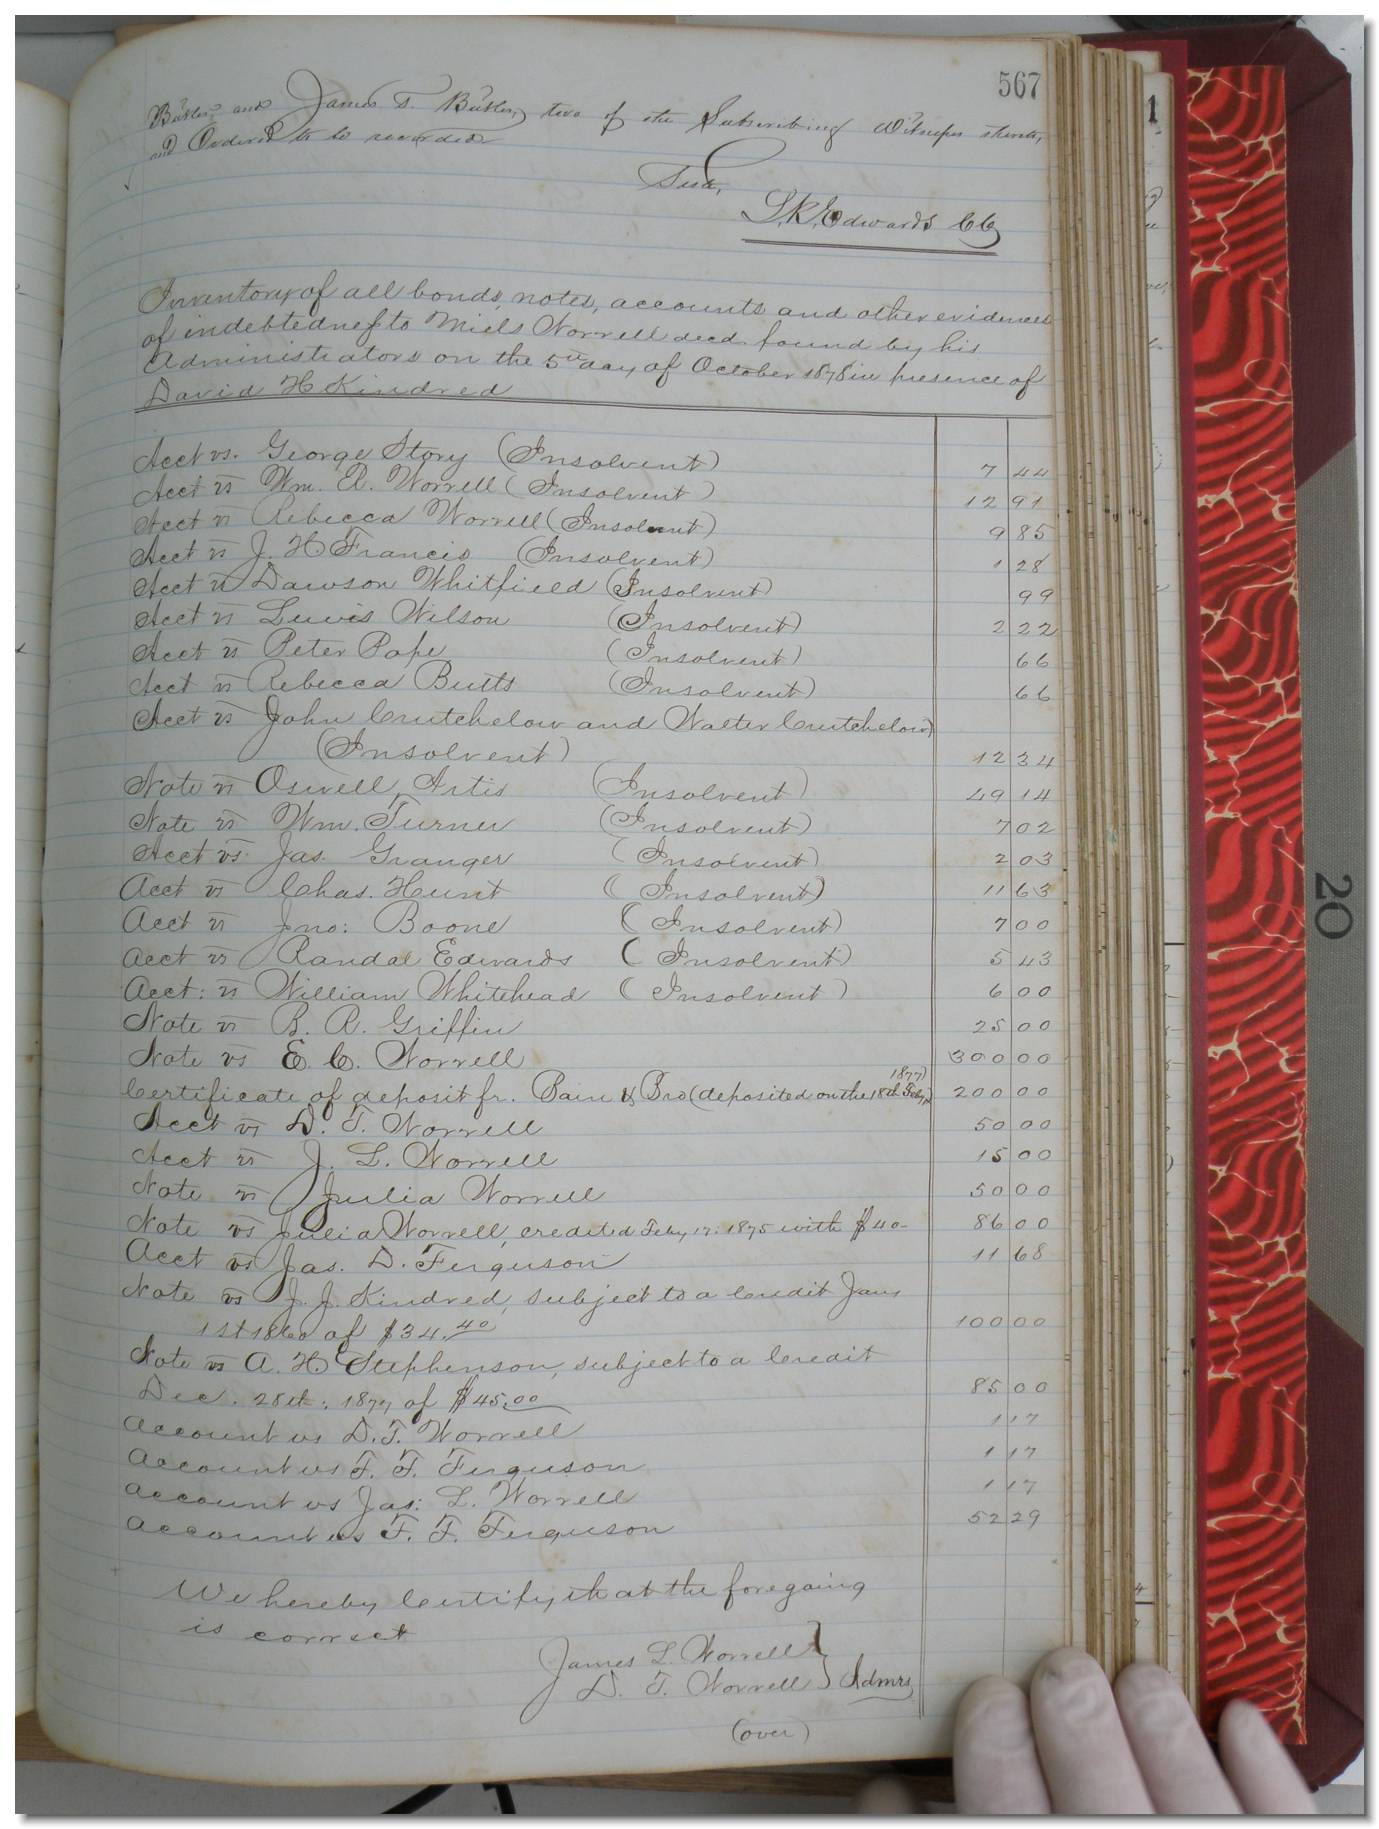 567
1
Butler and James T. Butler, two of the Subscribing Witnesses thereto,
and Ordered to be recorded
Teste,
L. R. Edwards CC
Inventory of all bonds, notes, accounts and other evidences
of indebtedness to Miels Worrell decd. found by his
Administrators on the 5th day of October 1878 in presence of
David H Kindred
Acct vs. George Story (Insolvent) 7 44
Acct vs Wm. R. Worrell (Insolvent) 12 91
Acct vs Rebecca Worrell (Insolvent) 9 85
Acct vs J. H Francis (Insolvent) 1 28
Acct vs Dawson Whitfield (Insolvent) 99
Acct vs Lewis Wilson (Insolvent) 2 22
Acct vs Peter Pope (Insolvent) 66
Acct vs Rebecca Butts (Insolvent) 66
Acct vs John Crutchelow and Walter Crutchelow
(Insolvent) 12 34
Note vs Oswell Artis (Insolvent) 49 14
Note vs Wm. Turner (Insolvent) 7 02
Acct vs Jas. Granger (Insolvent) 2 03
Acct vs Chas. Hunt (Insolvent) 11 63
Acct vs Jno: Boone (Insolvent) 7 00
Acct vs Randal Edwards (Insolvent) 5 43
Acct: vs William Whitehead (Insolvent) 6 00
Note vs B. R. Griffin 25 00
Note vs E. C. Worrell 300 00
1877)
Certificate of deposit fr. Pain & Bro (deposited on the 18th Feby, 200 00
Acct vs D. T. Worrell 50 00
Acct vs J. L. Worrell 15 00
Note vs Julia Worrell 50 00
Note vs Julia Worrell, credited Feby 17: 1875 with $40- 86 00
Acct vs Jas. D. Ferguson 11 68
Note vs J. J. Kindred, subject to a Credit Jany
1st 1860 of $34.40 100 00
Note vs A. H. Stephenson, subject to a Credit
Dec. 28th: 1877 of $45.00 85 00
Account vs D. T. Worrell 1 17
Account vs F. F. Ferguson 1 17
Account vs Jas: L. Worrell 1 17
Account vs F. F. Ferguson 52 29
We hereby Certify that the foregoing
is correct
James L. Worrell }
D. T. Worrell } Admrs
(over)
20